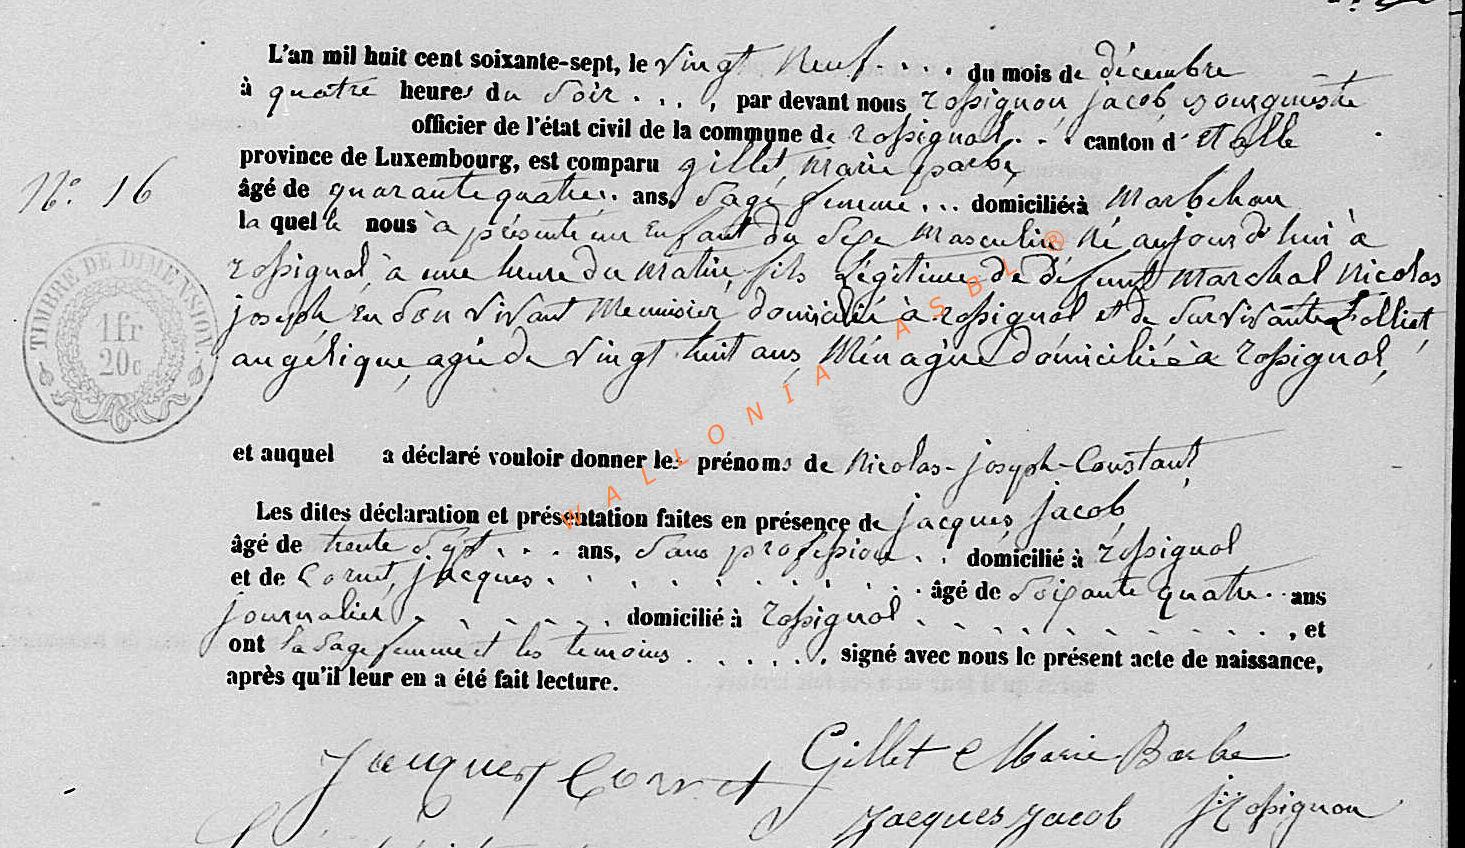 L'an mil huit cent soixante-sept, le vingt neuf . . . . du mois de décembre
à quatre heures du soir . . . , par devant nous rossignon jacob bourgmestre
officier de l'état civil de la commune de rossignol . . . canton d' Etalle
province de Luxembourg, est comparu gillet, marie barbe,
N°. 16 âgé de quarante quatre . . ans, sage femme . . . domiciliée à Marbehan
la quelle nous à présenté un enfant du sexe Masculin Né aujourd'hui à
rossignol, à une heure du matin, fils légitime de défunt Marchal Nicolas
joseph en son vivant Menuisier domicilié à rossignol et de survivante Folliet,
angélique, agée de vingt huit ans, Ménagère domiciliée à rossignol,
TIMBRE DE DIMENSION.
1 fr
20c
et auquel a déclaré vouloir donner les prénoms de Nicolas-joseph-Constant
Les dites déclaration et présentation faites en présence de jacques, jacob,
âgé de trente sept . . . ans, sans profession . . domicilié à rossignol
et de Cornet, jacques . . . . . . . . . . . âgé de soixante quatre . . ans
journalier . . . . . . domicilié à rossignol . . . . . . . . . . . , et
ont la sage femme et les temoins . . . . . . signé avec nous le présent acte de naissance,
après qu'il leur en a été fait lecture.
Jacques Cornet Gillet Marie Barbe
Jacques Jacob J Rossignon
WALLONIA ASBL ®